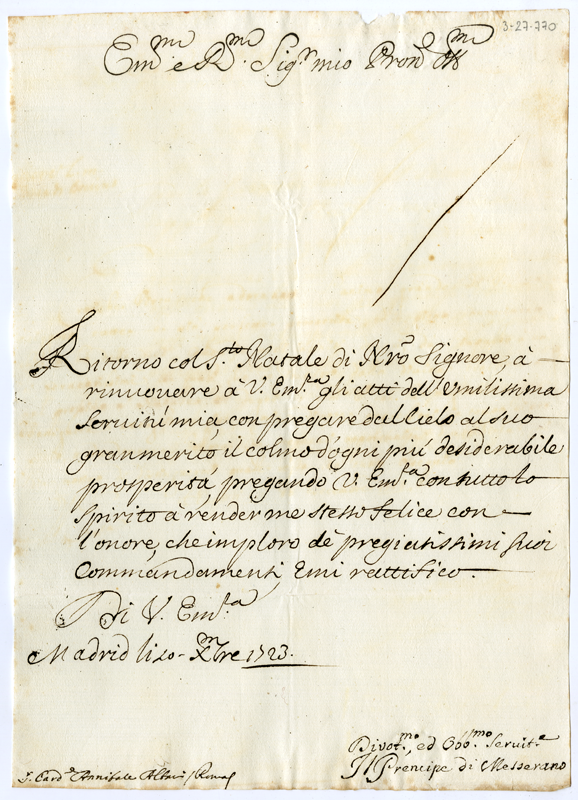 3-27-770
Em.mo e R.mo Sig.r mio Pron.
Ritorno col S.to Natale di Nr̃o Signore, à
rinuouare à V. Em.za gli atti dell'vmilissima
seruitú mia, con pregare dal Cielo al suo
gran merito il colmo d'ogni piú desiderabile
prosperitá, pregando V. Em.za con tutto lo
spirito à render me stesso felice con
l'onore, che imploro de' pregiatissimi suoi
Commandamenti, e mi rattifico.
Di V. Em.za
Madrid li 20 Xmbre 1723.
Divot.mo, ed Obb.mo Seruit.e
Il Prencipe di Messerano
S. Card.e Annibale Albani / Roma